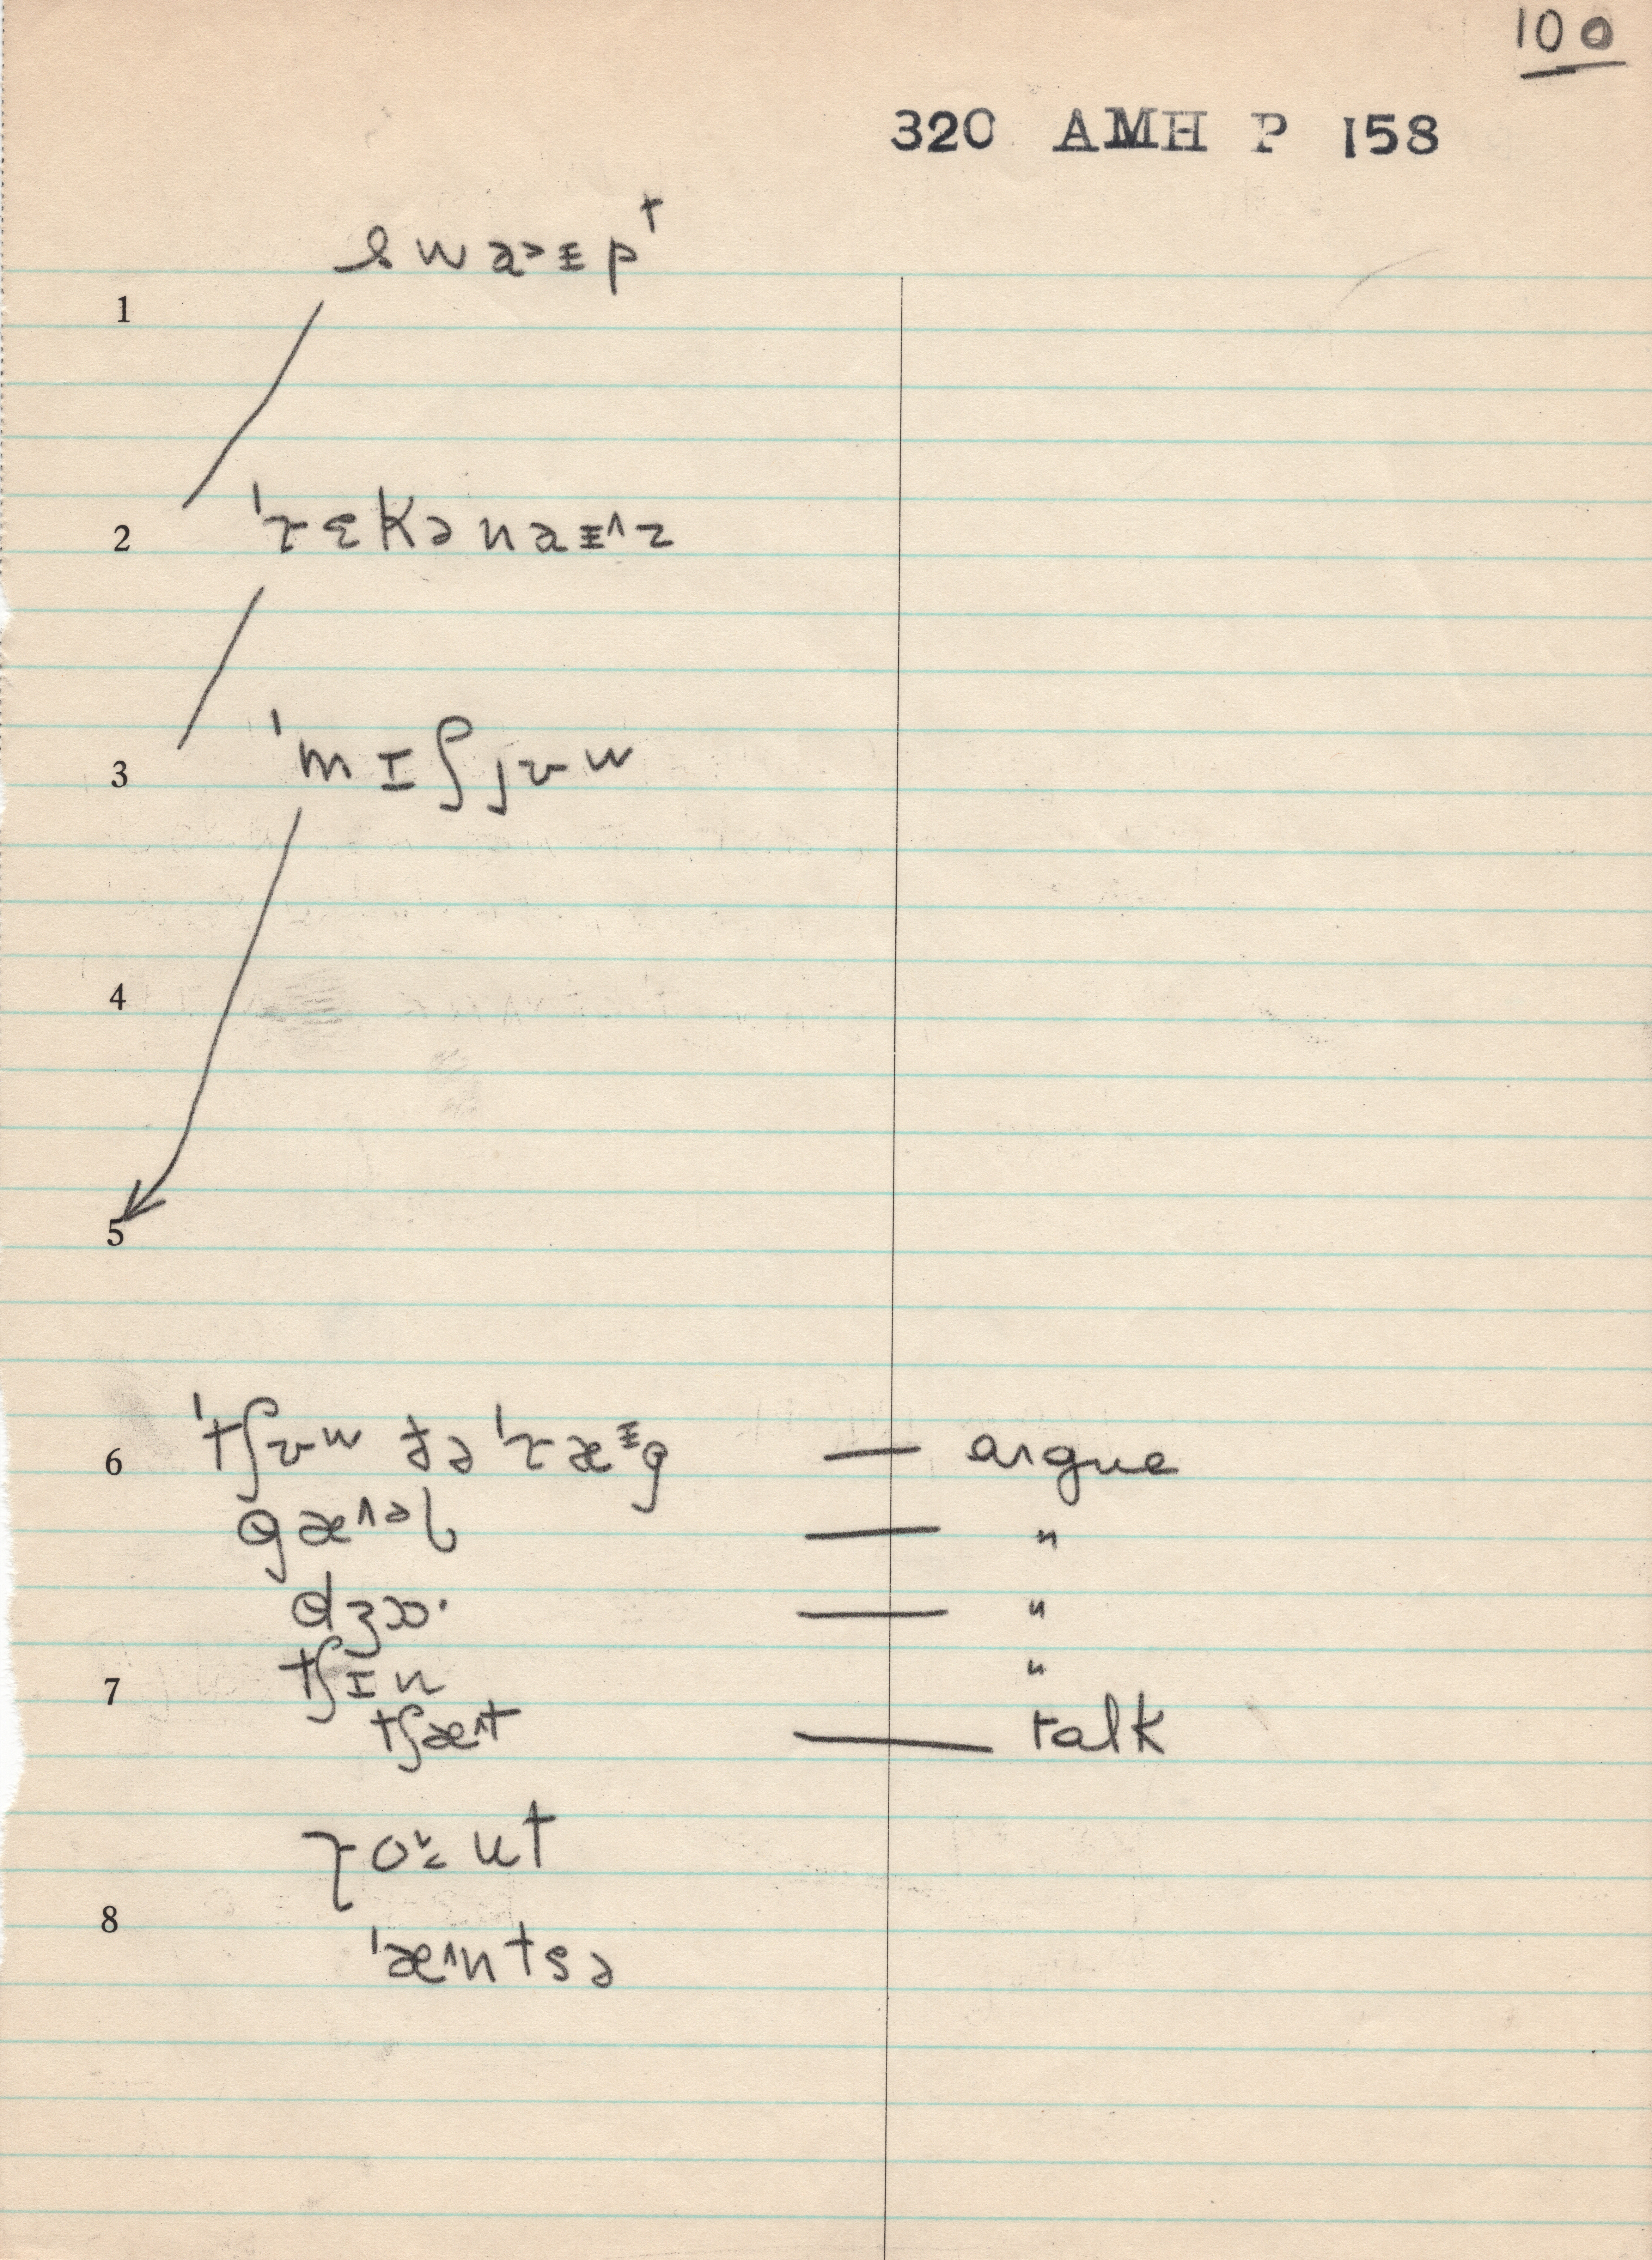 100
320 AMH P 158
1
swa˃ᵻp†
2
ˈɽɛkənaᵻ˄z
3
ˈmɪʃjʊw
4
5
6 ˈtʃʊw ðə ˈɽæᵻg — argue
gæ˄əl — "
dʒɔ· — "
7 tʃɪn "
tʃæ˄t — talk
8
ˈæ˄ntsə